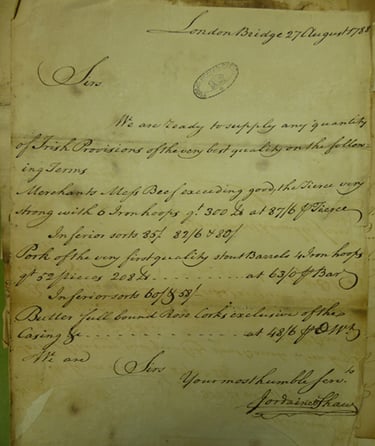 London Bridge 27 August 1788
Sirs
We are ready to supply any quantity
of Irish Provisions of the very best quality on the follow-
ing Terms
Merchants Mess Beef exceeding good, the Tierce very
strong with 6 Iron hoops qt 300 lbs at 87/6 ⅌ Tierce
Inferior sorts 85/. 82/6 & 80/
Pork of the very first quality stout Barrels 4 Iron hoops
qt 52 pieces 208 lbs . . . . . . . . . . . at 63/0 ⅌ Barl
Inferior sorts 60/ & 58/
Butter full bound Rose Corks exclusive of the
Casing &c . . . . . . . . . . . . . . at 48/6 ⅌ C Wt
We are Sirs
Your most humble Servts
Jordaine & Shaw